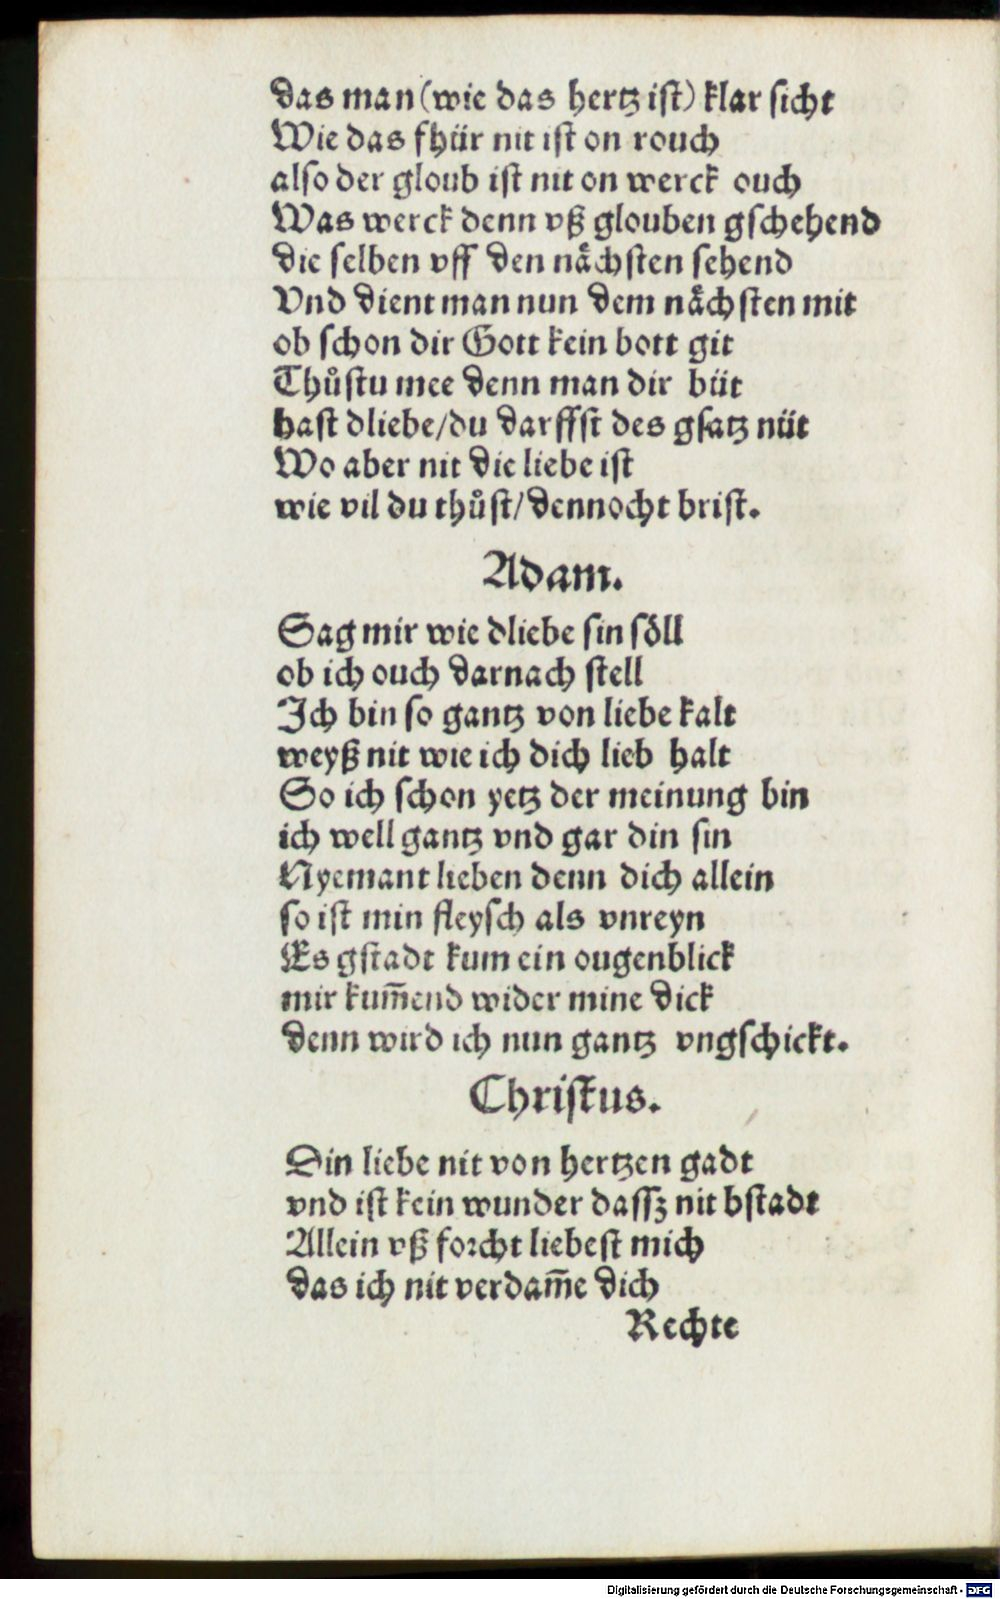 das man (wie das hertz ist) klar sicht
Wie das fhür nit ist on rouch
also der gloub ist nit on werck ouch
Was werck denn vß glouben gschehend
die selben vff den nåchsten sehend
Vnd dient man nun dem nåchsten mit
ob schon dir Gott kein bott git
Thůstu mee denn man dir büt
hast dliebe/du darffst des gsatz nüt
Wo aber nit die liebe ist
wie vil du thůst/dennocht brist.
Adam.
Sag mir wie dliebe sin söll
ob ich ouch darnach stell
Ich bin so gantz von liebe kalt
weyß nit wie ich dich lieb halt
So ich schon yetz der meinung bin
ich well gantz vnd gar din sin
Nyemant lieben denn dich allein
so ist min fleysch als vnreyn
Es gstadt kum ein ougenblick
mir kum̃end wider mine dick
denn wird ich nun gantz vngschickt.
Christus.
Din liebe nit von hertzen gadt
vnd ist kein wunder dassz nit bstadt
Allein vß forcht liebest mich
das ich nit verdam̃e dich
Rechte
Digitalisierung gefördert durch die Deutsche Forschungsgemeinschaft - DFG